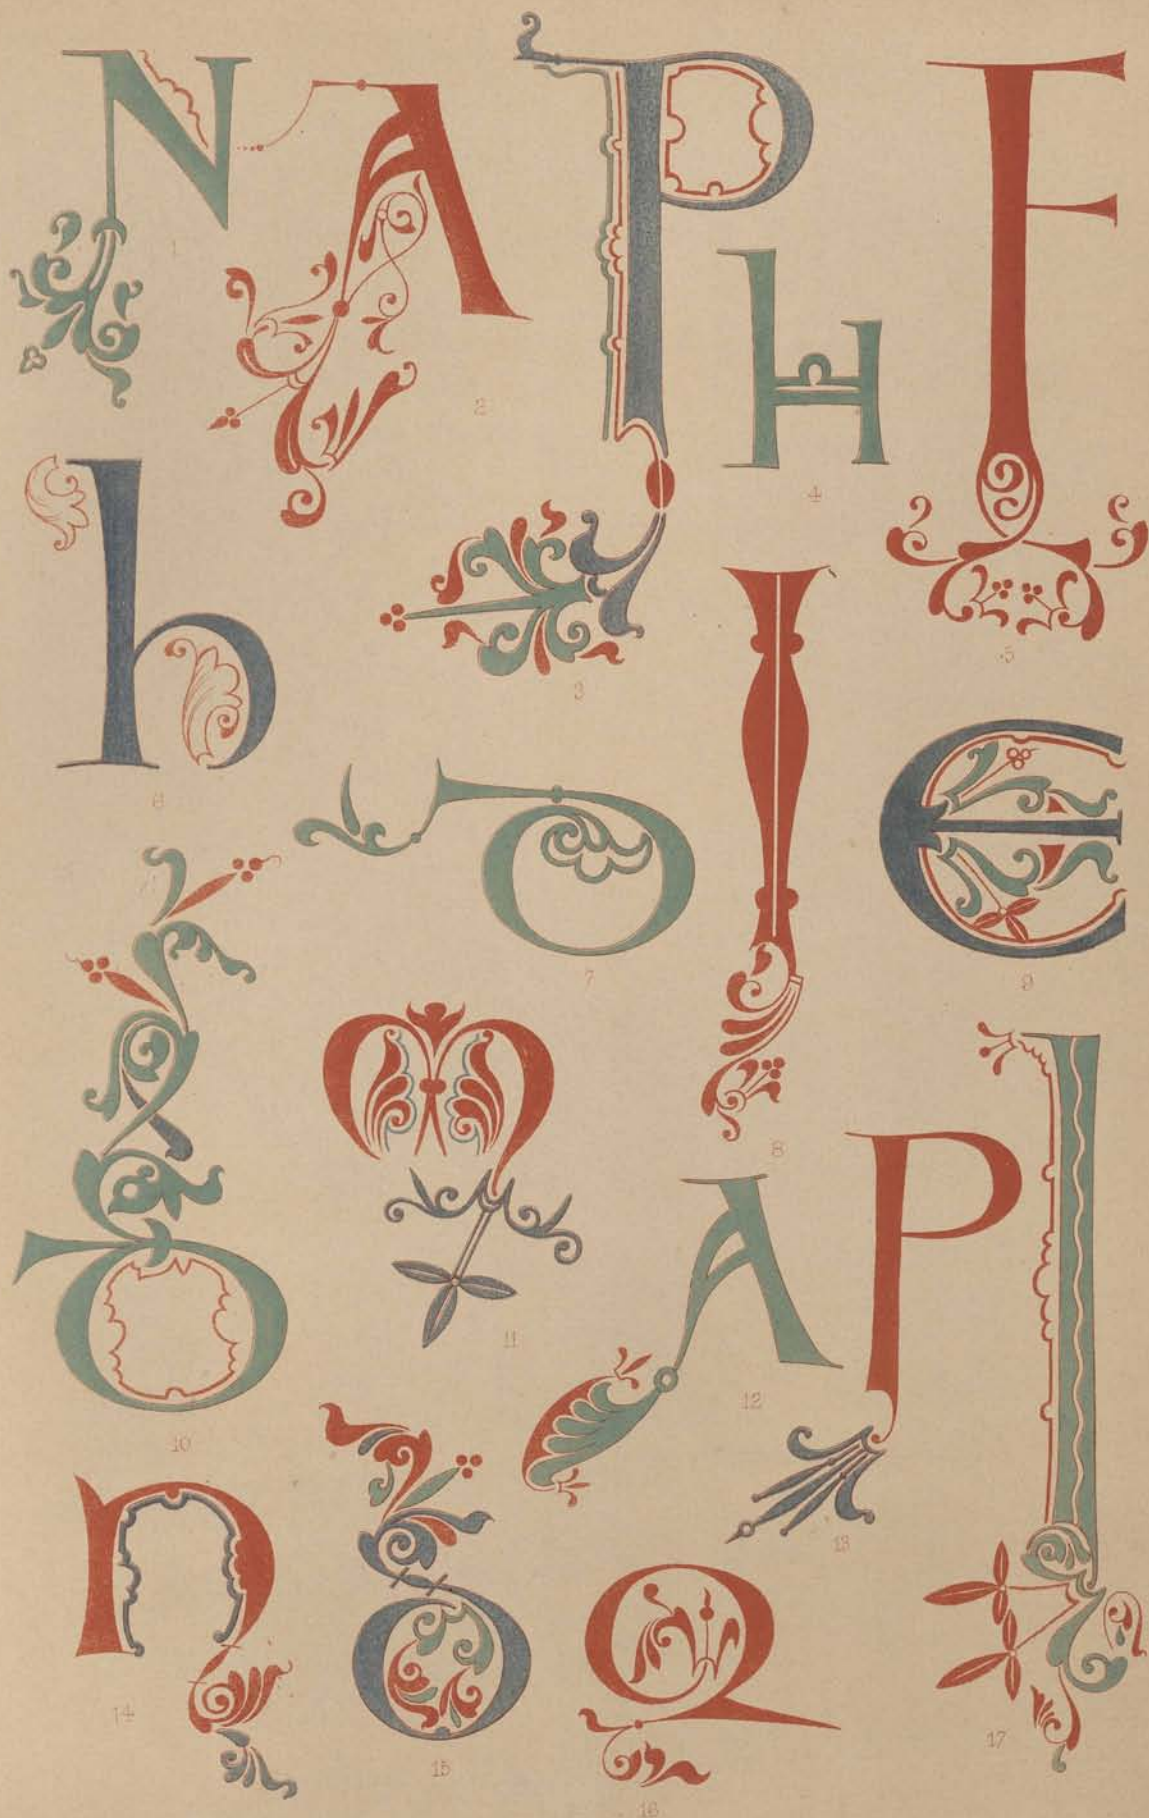 N
1
A
2
P
3
H
4
F
5
h
6
D
7
I
8
E
9
D
10
M
11
A
12
P
13
n
14
D
15
Q
16
I
17